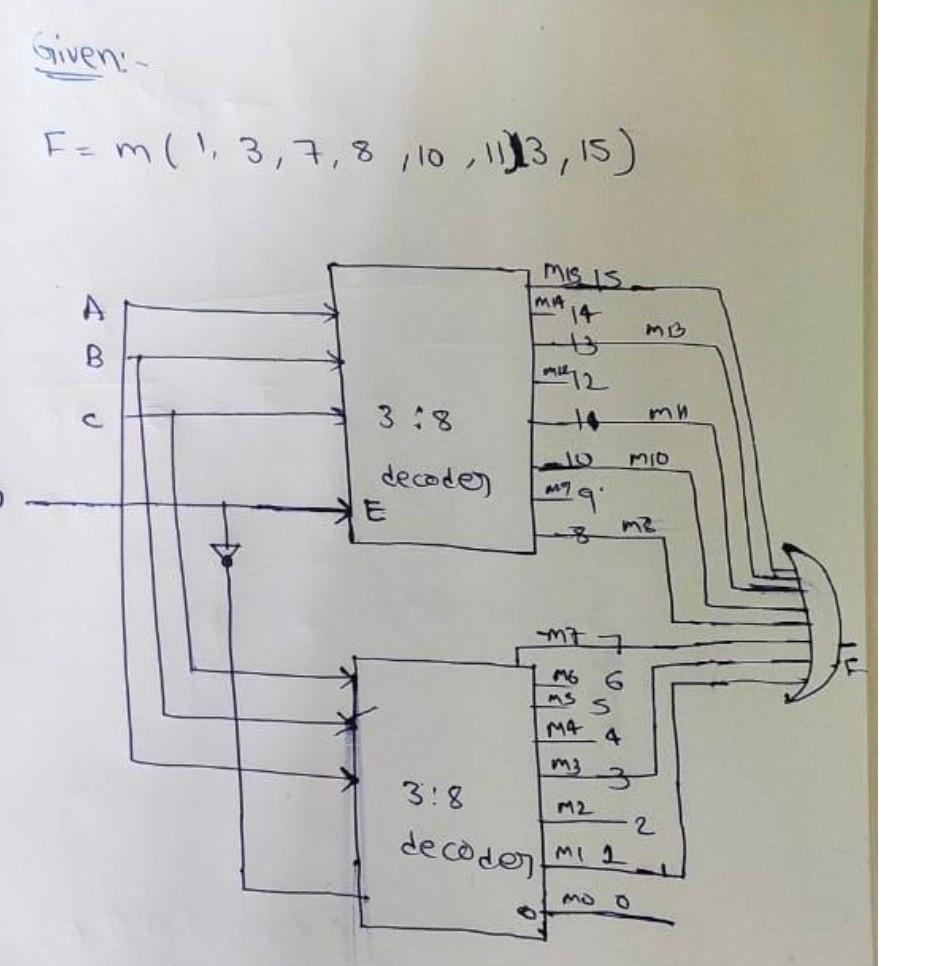 Given:-
F = m ( 1, 3, 7, 8 , 10 , 11,13 , 15 )
A
B
C
3 : 8
decoder
E
m15 15
m14 14
13 m13
m12 12
11 m11
10 m10
m9 9
8 m8
F
m7 7
m6 6
m5 5
m4 4
m3 3
m2 2
m1 1
m0 0
3 : 8
decoder